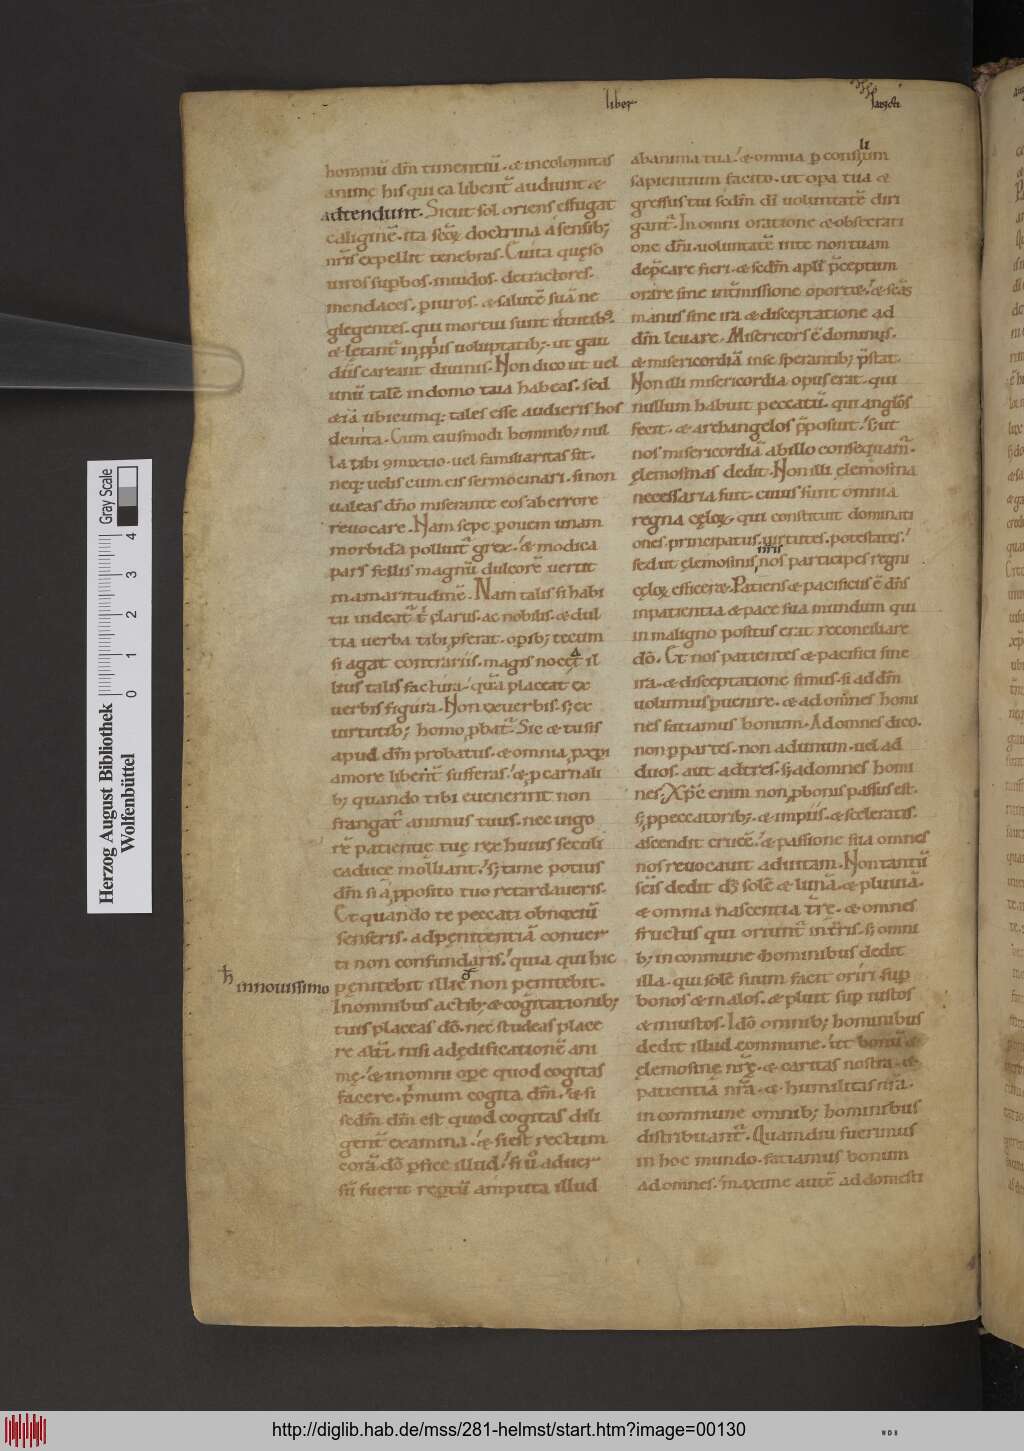 liber
hominū dm̄ timentiū. & incolomitas
animę his qui ea libent̄ audiunt &
adtendunt. Sicut sol oriens effugat
caliginē. ita scōꝝ doctrina a sensib;
nr̄is expellit tenebras. Euita quęso
uiros supbos. inuidos. detractores.
mendaces. piuros. & salutē suā ne
glegentes. qui mortui sunt uirtutib;
& letant̄ in ppriis uoluptatib;. ut gau
diis careant diuinis. Non dico ut uel
unū talē in domo tua habeas. sed
& iā ubicumq; tales esse audieris hos
deuita. Cum eiusmodi hominib; nul
la tibi ꝯmixtio. uel familiaritas sit.
neq; uelis cum eis sermocinari. si non
ualeas dn̄o miserante eos ab errore
reuocare. Nam sepe p ouem unam
morbidā polluit̄ grex. & modica
pars fellis magnū dulcorē uertit
in amaritudinē. Nam talis si habi
tu uideat̄ tibi clarus. ac nobilis. & dul
tia uerba tibi pferat. opib; tecum
si agat contrariis. magis nocet il
lius talis factura. quā placeat ex
uerbis figura. Non ex uerbis. s; ex
uirtutib; homo pbat̄. Sic & tu sis
apud dm̄ probatus. & omnia p xp̄i
amore libent̄ sufferas. & p carnali
b; quando tibi euenerint non
frangat̄ animus tuus. nec uigo
rē patientię tuę res huius seculi
caduce molliant. s; time potius
dm̄ si a pposito tuo retardaueris.
Et quando te peccati obnoxiū
senseris. ad pęnitentiā conuer
ti non confundaris. quia qui hic
in nouissimo pęnitebit illic non penitebit.
In omnibus actib; & cogitationib;
tuis placeas dō. nec studeas place
re alt̄i. nisi ad ędificationē ani
mę. & in omni ope quod cogitas
facere. pmum cogita dm̄. & si
sedm̄ dm̄ est quod cogitas dili
gent̄ examina. & si est rectum
corā dō pfice illud. si ū aduer
sū fuerit reptū amputa illud
ab anima tua. & omnia p consilium
sapientium facito. ut opa tua &
gressus tui sedm̄ dī uoluntatē diri
gant̄. In omni oratione & obsecrati
one dn̄i uoluntatē in te non tuam
depcare fieri. & sedm̄ apl̄i pceptum
orare sine int̄missione oport&. & scās
manus sine ira & disceptatione ad
dm̄ leuare. Misericors ē dominus.
& misericordiā in se sperantib; pstat.
Non illi misericordia opus erat. qui
nullum habuit peccatū. qui angl̄os
fecit. & archangelos pposuit. s; ut
nos misericordiā ab illo consequam̄.
ęlemosinas dedit. Non illi ęlemosina
necessaria fuit. cuius sunt omnia
regna cęloꝝ. qui constituit dominati
ones. principatus. uirtutes. potestates.
sed ut ęlemosinis nr̄is nos participes regni
cęloꝝ efficer&. Patiens & pacificus ē dn̄s
in patientia & pace sua mundum qui
in maligno positus erat reconciliare
dō. Et nos patientes & pacifici sine
ira. & disceptatione simus. si ad dm̄
uolumus puenire. & ad omnes homi
nes fatiamus bonum. Ad omnes dico.
non p partes. non ad unum. uel ad
duos. aut ad tres. s; ad omnes homi
nes. Xp̄c enim non p bonis passus est.
s; p peccatorib;. & impiis. & sceleratis.
ascendit crucē. & passione sua omnes
nos reuocauit ad uitam. Non tantū
scīs dedit dſ solē & lunā. & pluuiā.
& omnia nascentia t̄re. & omnes
fructus qui oriunt̄ in t̄ris. s; omni
b; in commune hominibus dedit
illa. qui solē suum facit oriri sup
bonos & malos. & pluit sup iustos
& iniustos. Idō omnib; hominibus
dedit illud commune. ut bonū &
ęlemosine nr̄ę. & caritas nostra. &
patientia nr̄a. & humilitas nr̄a.
in commune omnib; hominibus
distribuant̄. Quamdiu fuerimus
in hoc mundo. fatiamus bonum
ad omnes. maxime autē ad domesti
Herzog August Bibliothek
Wolfenbüttel
0 1 2 3 4
Gray Scale
http://diglib.hab.de/mss/281-helmst/start.htm?image=00130